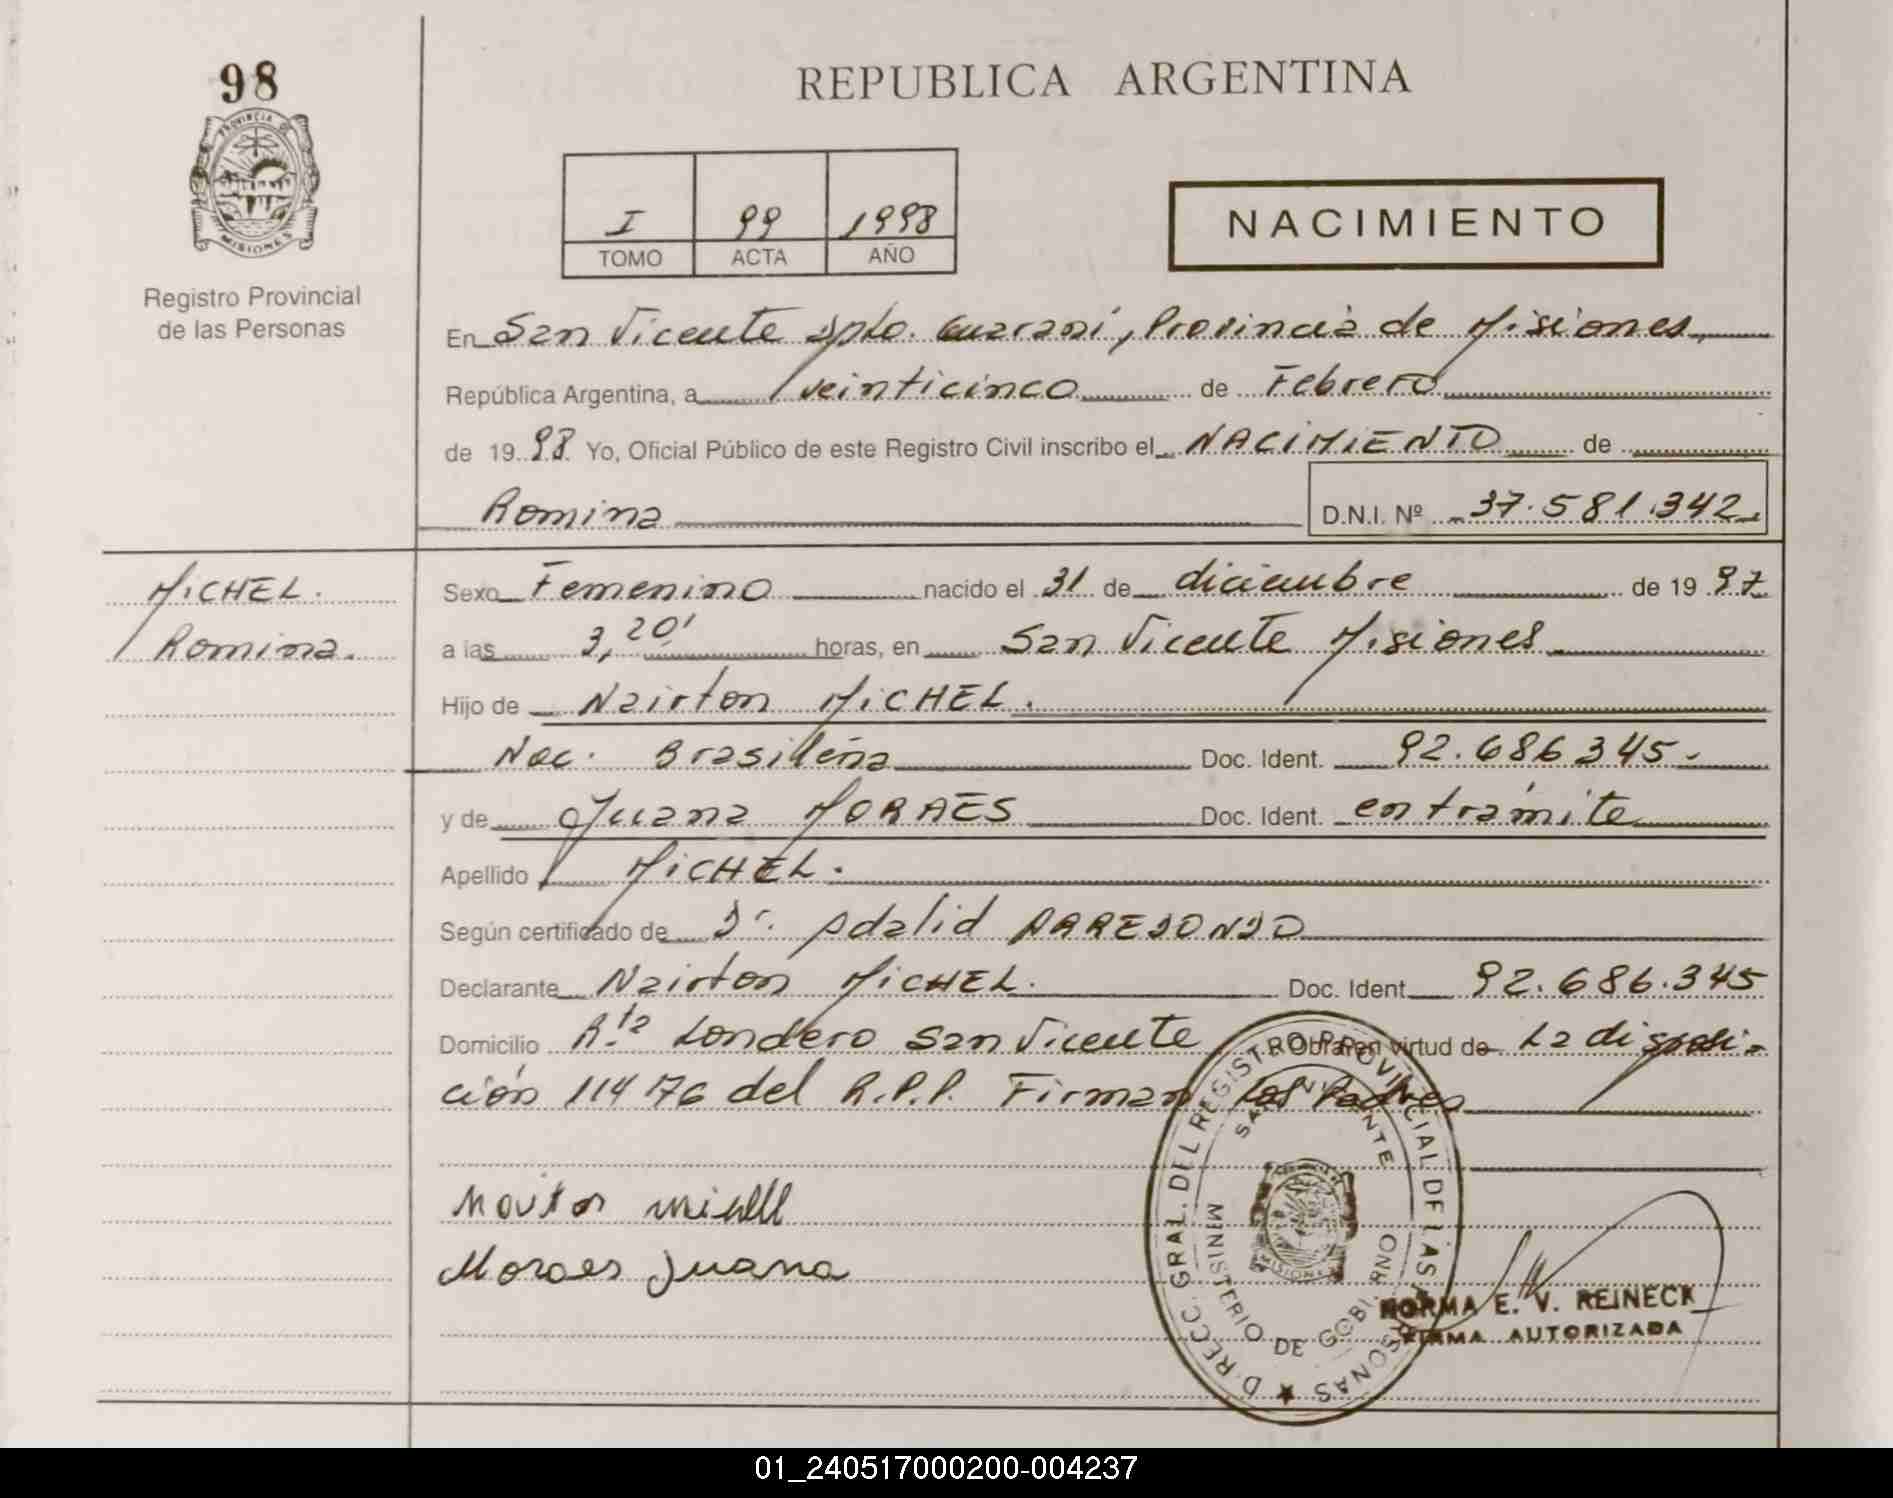 98
REPUBLICA ARGENTINA
PROVINCIA DE
MISIONES
Registro Provincial
de las Personas
I 99 1998
TOMO ACTA AÑO
NACIMIENTO
En San Vicente Dpto. Guaraní, Provincia de Misiones
República Argentina, a veinticinco de Febrero
de 1998 Yo, Oficial Público de este Registro Civil inscribo el NACIMIENTO de
Romina D.N.I. Nº 37.581.342.
MICHEL.
Romina.
Sexo Femenino nacido el 31 de diciembre de 1997
a las 3,20' horas, en San Vicente Misiones
Hijo de Nairton MICHEL.
Nac. Brasileña Doc. Ident. 92.686345.-
y de Juana MORAES Doc. Ident. en trámite
Apellido MICHEL.
Según certificado de Dr. Adalid ARREDONDO
Declarante Nairton MICHEL. Doc. Ident. 92.686.345
Domicilio Londero San Vicente Obrar en virtud de La disposi-
ción 114/76 del R.P.P. Firman Los Padres
Moraes Juana
DIRECC. GRAL. DEL REGISTRO PROVINCIAL DE LAS PERSONAS
SAN VICENTE
MINISTERIO DE GOBIERNO
MISIONES
NORMA E. V. REINECK
FIRMA AUTORIZADA
01_240517000200-004237